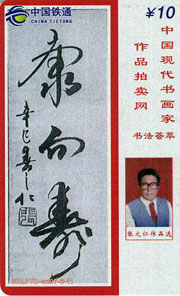 中国铁通
CHINA TIETONG
¥10
中国现代书画家
作品拍卖网
书法荟萃
康向寿
辛巳春之仁
张之仁作品选